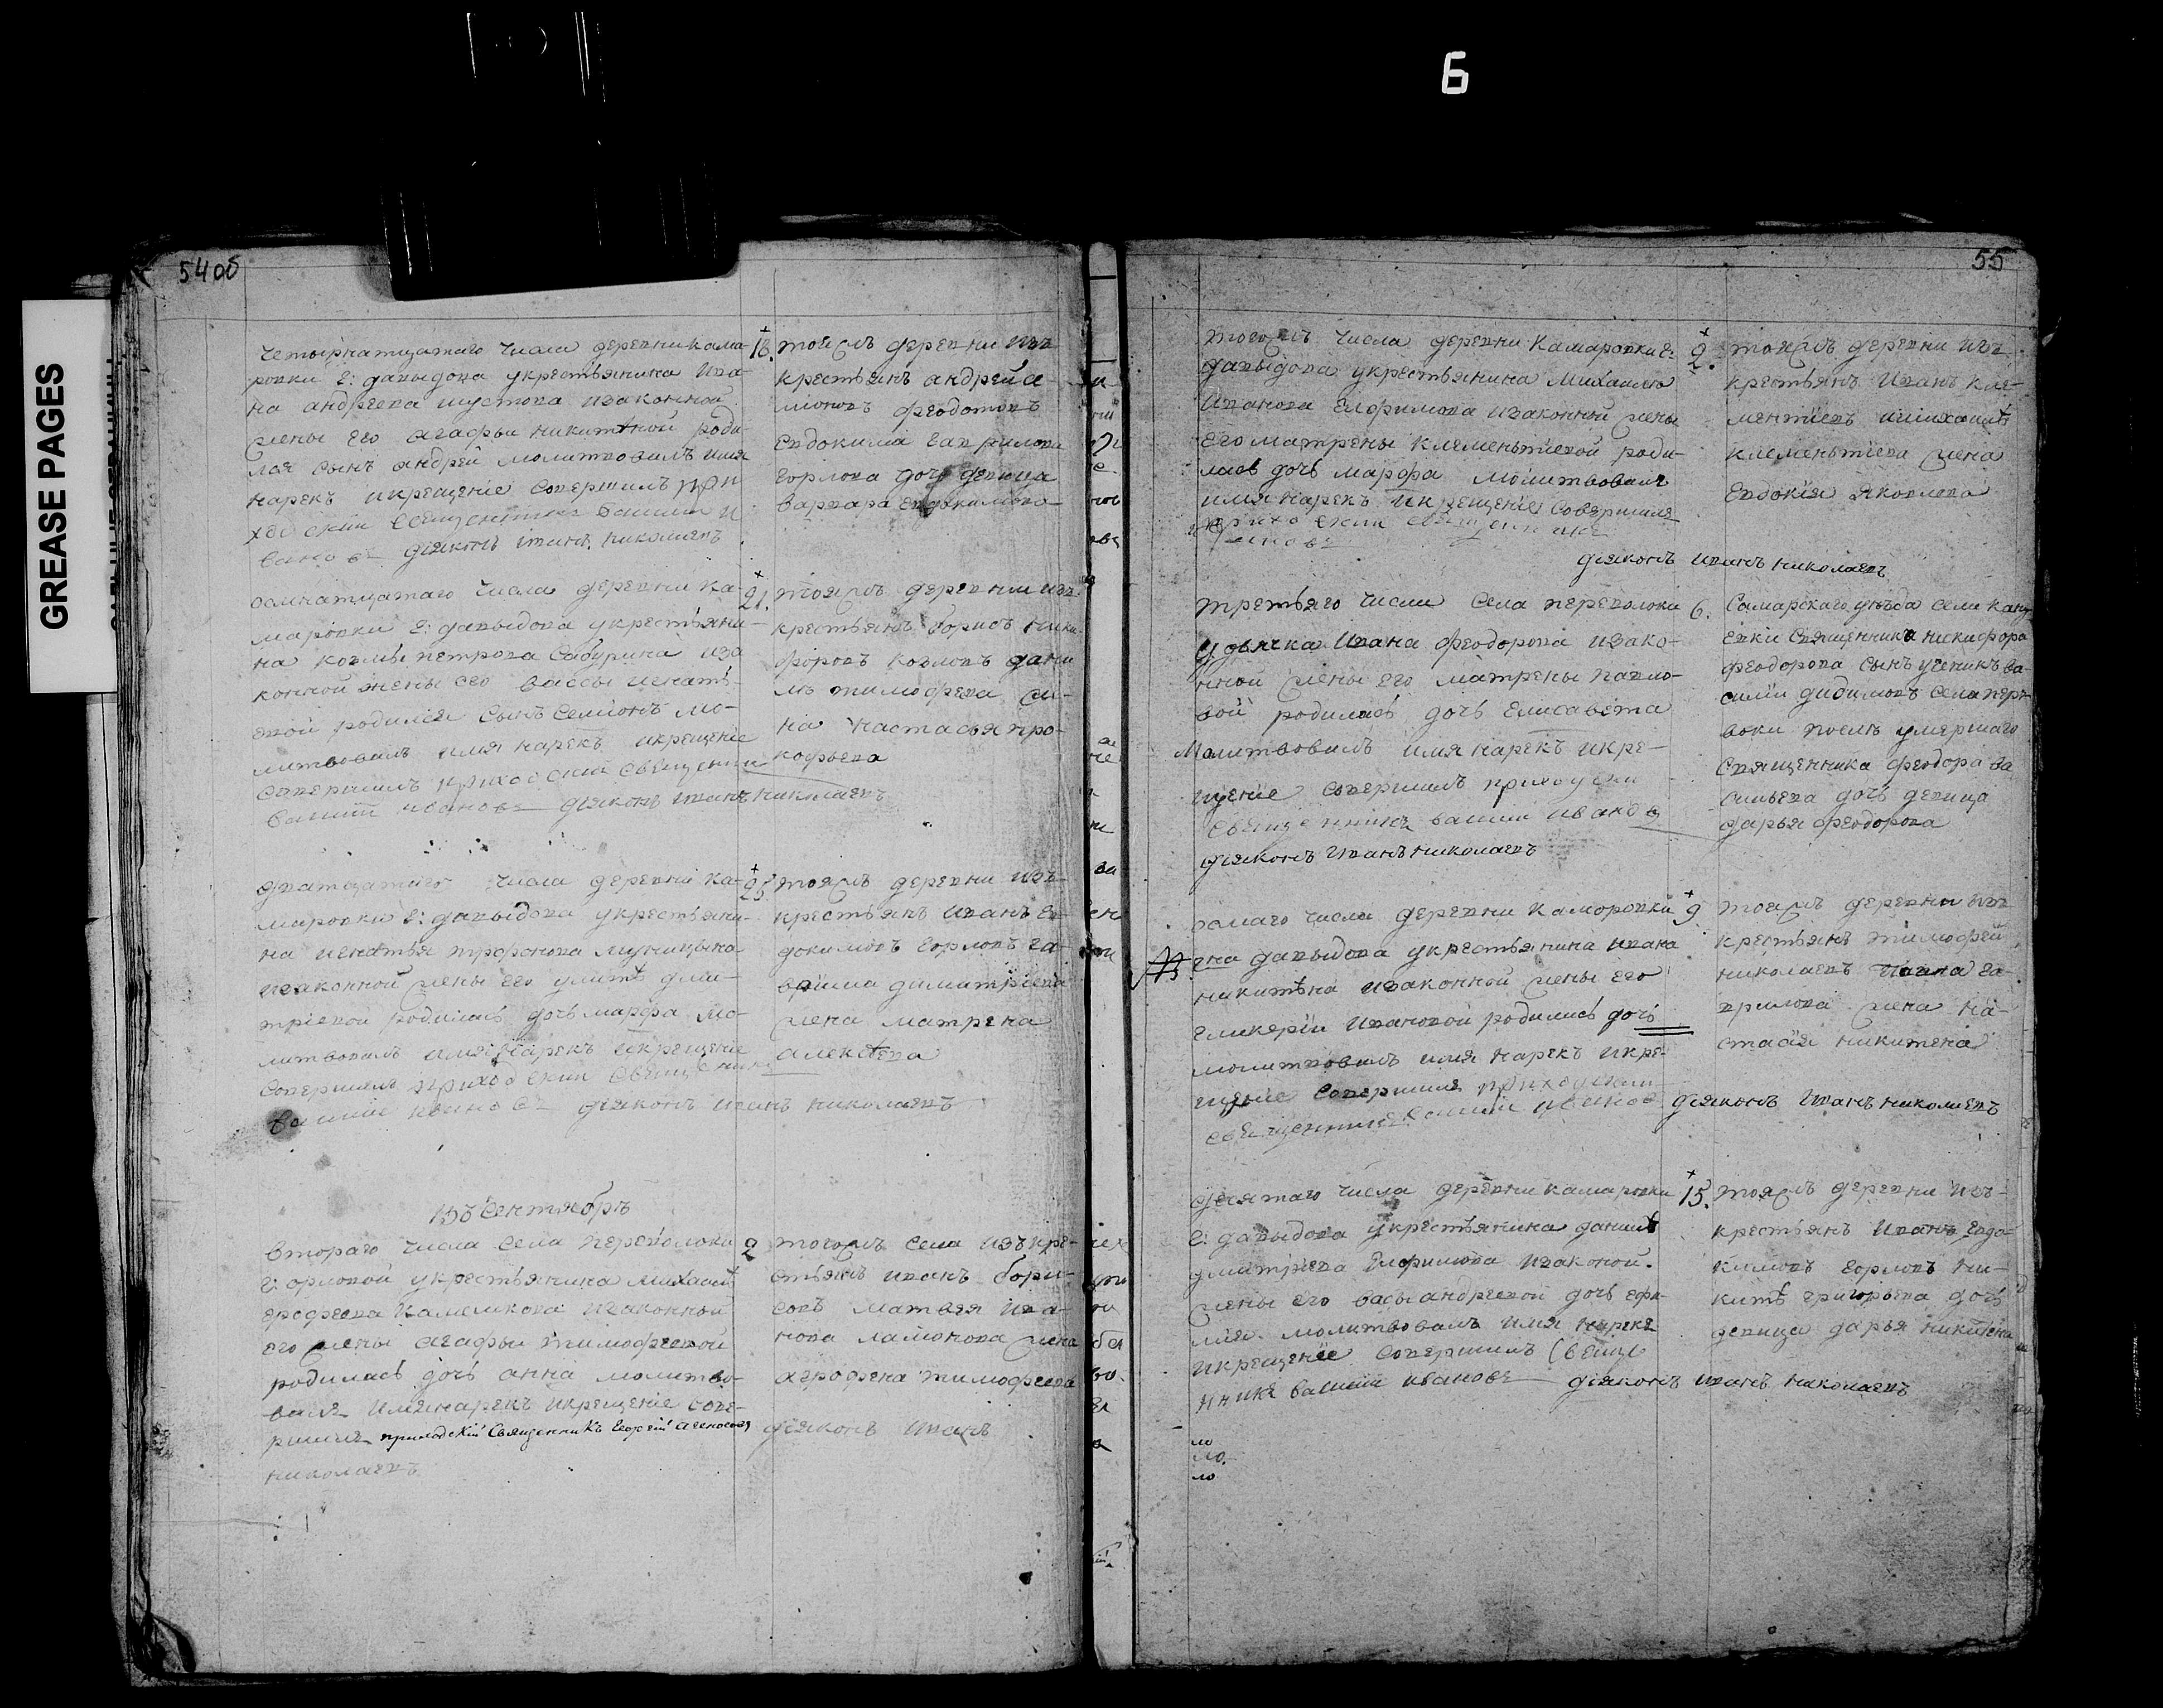 Б
GREASE PAGES
54об
четырнатцатаго числа деревни Кама-
ровки г: давыдова укрестьянина Ива-
на андреева шустова иззаконной
жены его агафьи никитиной роди-
лся сынъ андрей молитвовалъ имя
нарекъ икрещение совершилъ при
ходский священникъ василий и
вановъ диаконъ иванъ николаевъ
18. тоеяжъ деревни изъ
крестьянъ андрей а-
феодотовъ
евдокима гаврилова
горлова дочь девица
варвара евдокимова
осмнатцатаго числа деревни ка-
маровки г: давыдова укрестьяни-
на козмы петрова сабурина иза
конной жены его вассы игнать-
евой родился сынъ семионъ мо-
литвовалъ имя нарекъ икрещение
совершилъ приходский священни
василий ивановъ диаконъ иванъ николаевъ
21. тояжъ деревни изъ
крестьянъ борисъ ники-
форовъ козловъ дани
лъ тимофеева же-
на настасья про-
кофьева
дватцатаго числа деревни ка-
маровки г: давыдова укрестьяни-
на игнатья трофонова
иззаконной жены его улиты дми-
триевой родилась дочь марфа мо-
литвовалъ имя нарекъ икрещение
совершилъ приходский священникъ
василий ивановъ диаконъ иванъ николаевъ
25. тояжъ деревни изъ
крестьянъ иванъ ев-
докимовъ горловъ га-
врила димитриева
жена матрена
алексеева
въ сентябръ
втораго числа села переволоки
г: орловой укрестьянина михаилы
ерофеева камеликова иззаконной
его жены агафьи тимофеевой
родилась дочь анна молитво-
валъ имянарекъ икрещение сове-
ршилъ приходский священникъ георгий агеносовъ диаконъ иванъ
николаевъ
2 тогожъ села изъ кре-
стьянъ иванъ бори-
совъ матвея ива-
нова ламонова жена
агрофена тимофеева
55
тогожъ числа деревни Камаровки г:
давыдова укрестьянина михаила
иванова елфимова иззаконной жены
его матрены клементьевой роди-
лась дочь марфа молитвовалъ
имя нарекъ икрещение совершилъ
приходский священникъ
ивановъ
диаконъ иванъ николаевъ
2. тояжъ деревни изъ
крестьянъ иванъ кле-
ментиевъ имихаилы
клементьева жена
евдокия яковлева
третьяго числа села переволоки
у дьячка ивана феодорова изако-
нной жены его матрены павло-
вой родилась дочь елисавета
молитвовалъ имя нарекъ икре-
щение совершилъ приходски
священникъ василий ивановъ
диаконъ иванъ николаевъ
6. Самарскаго уезда села кану
евки священника никифора
феодорова сынъ ученикъ ва-
силий дидимовъ села пере-
воки после умершаго
священника феодора ва
сильева дочь девица
дарья феодорова
осмаго числа деревни каморовки
г̃на давыдова укрестьянина ивана
никитина иззаконной жены его
гликерии ивановой родилась дочь
молитвовалъ имя нарекъ икре-
щение совершилъ приходский
священникъ василий ивановъ диаконъ иванъ николаевъ
9 тояжъ деревни изъ
крестьянъ тимофей
николаевъ ивана га-
врилова жена на-
стасия никитина
десятаго числа деревни камаровки
г: давыдова укрестьянина данилы
дмитриева елфимова изаконой
жены его васы андреевой дочь ефи-
мия молитвовалъ имя нарекъ
икрещение совершилъ свяще
нникъ василий ивановъ диаконъ иванъ николаевъ
15. тояжъ деревни изъ-
крестьянъ иванъ евдо-
кимовъ горловъ ни-
киты григорьева дочь
девица дарья никитина
ло
ло
ло